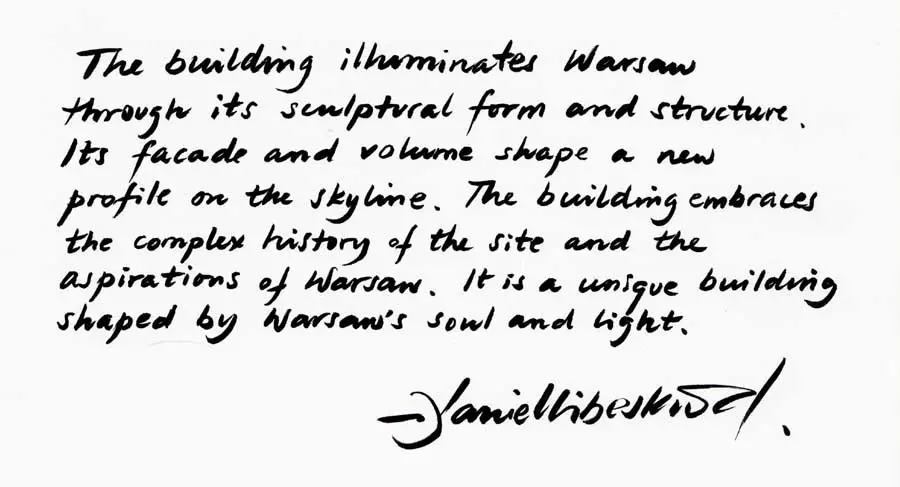 The building illuminates Warsaw
through its sculptural form and structure.
Its facade and volume shape a new
profile on the skyline. The building embraces
the complex history of the site and the
aspirations of Warsaw. It is a unique building
shaped by Warsaw's soul and light.
Daniel Libeskind.